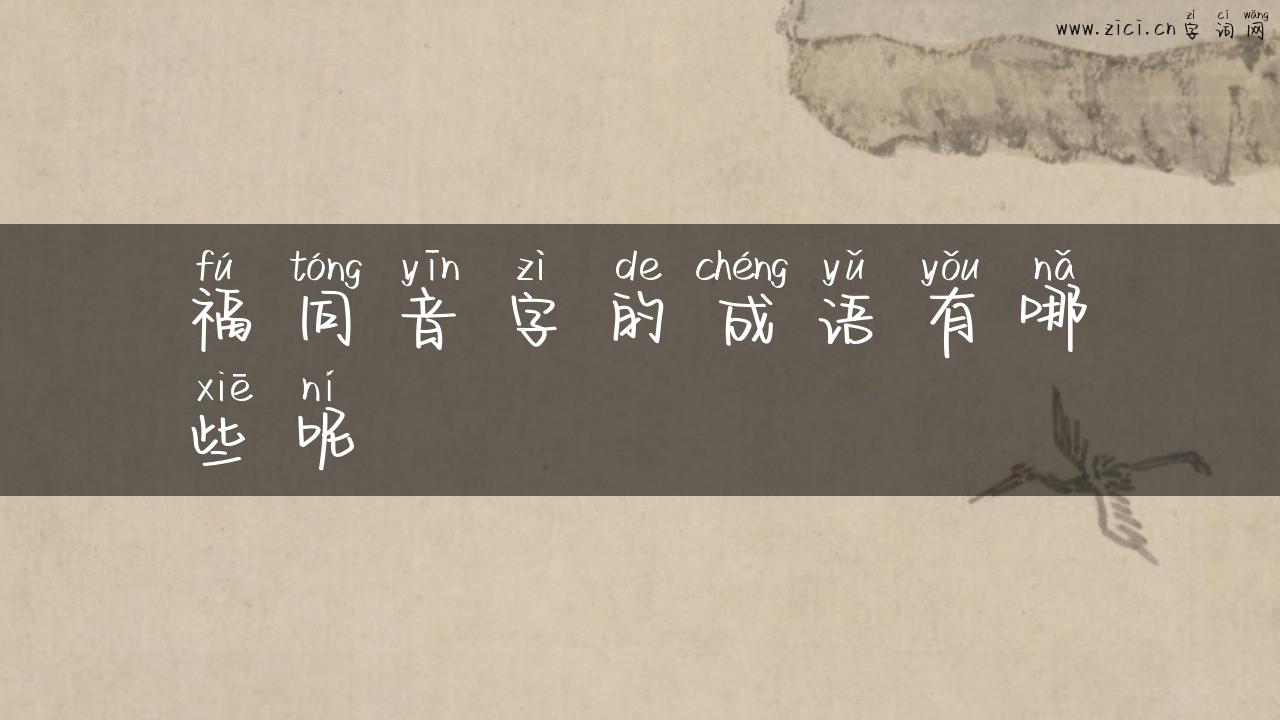 zì cí wǎng
www.zici.cn 字 词 网
fú tóng yīn zì de chéng yǔ yǒu nǎ
福 同 音 字 的 成 语 有 哪
xiē ní
些 呢